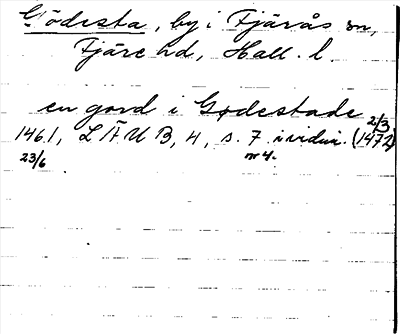 Gödesta, by i Fjärås sn,
Fjäre hd, Hall. l.
en gard i Gødestade
1461, LÄUB, 4, s. 7 i vidim. (1472)
23/6 nr 4. 2/3